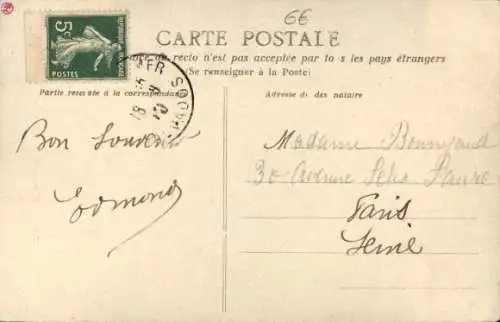 6E
5c
POSTES
CARTE POSTALE
recto n'est pas acceptée par to s les pays étrangers
(Se renseigner à la Poste)
Partie réservée à la correspondan
Adresse des nataire
Bon Souvenir
Edmond
Madame
30 Avenue Félix Faure
Paris
Seine